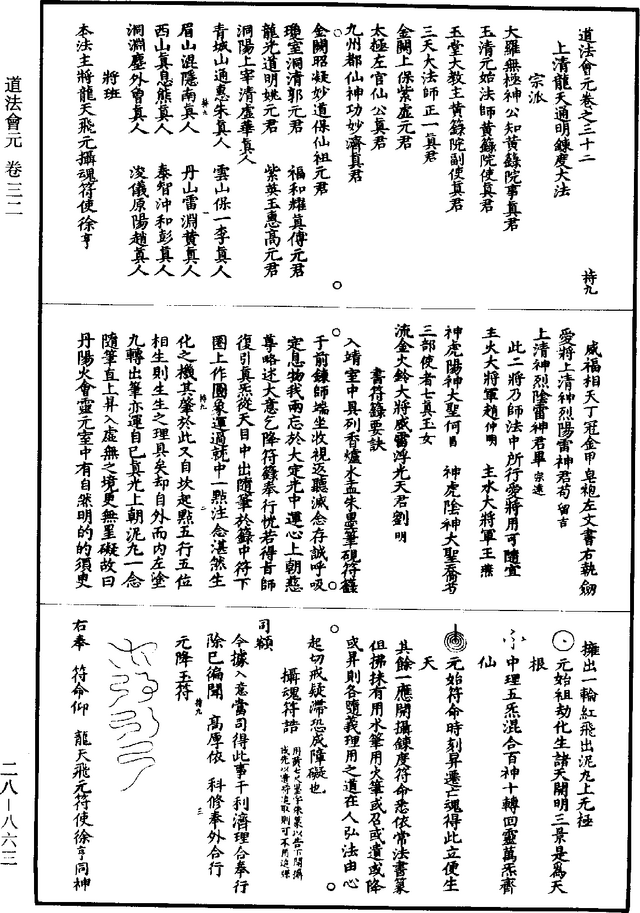 道法會元卷之三十二
上清龍天通明鍊度大法
宗派
大羅無極神公知黃籙院事真君
玉清元始法師黃籙院使真君
玉堂大教主黃籙院副使真君
三天大法師正一真君
金闕上保紫虛元君
太極左官仙公真君
九州都仙神功妙濟真君
金闕昭凝妙道保仙祖元君
瓊室洞清郭元君　福和耀真傅元君
龍光道明姚元君　紫英玉惠高元君
洞陽上宰清虛華真人
青城山通惠朱真人　雲山保一李真人
眉山混隱南真人　丹山雷淵黃真人
西山真息熊真人　泰智沖和彭真人
洞淵塵外曾真人　浚儀原陽趙真人
將班
本法主將龍天飛元攝魂符使徐亨
威福相天丁冠金甲皂袍左文書右執劒
愛將上清神烈陽雷神君苟留吉
上清神烈陰雷神君畢宗遠
此二將乃師法中所行愛將用可隨宜
主火大將軍趙仲明　主水大將軍王燕
神虎陽神大聖何昌　神虎陰神大聖喬苟
三部使者七真玉女
流金火鈴大將威雷浮光天君劉明
書符籙要訣
入靖室中具列香爐水盂朱墨筆硯符籙
于前鍊師端坐收視返聽減念存誠呼吸
定息物我兩忘於大定光中運心上朝慈
尊略述大意乞降符籙奉行恍若得旨師
復引真炁從天目中出隨筆於籙中符下
圈上作圓象運過就中一點注念湛然生
化之機其肇於此又自坎起點五行五位
相生則生生之理具矣却自外而內左塗
九轉出筆亦運自己真光上朝泥九一念
隨筆直上昇入虛無之境更無罣礙故曰
丹陽火會靈元室中有自然明的的須臾
擁出一輪紅飛出泥九上无極
元始祖劫化生諸天開明三景是為天
根
中理五炁混合百神十轉回靈萬炁齊
仙
元始符命時刻昇遷亡魂得此立便生
天
其餘一應開攝鍊度符命悉依常法書篆
但拂抹有用水筆用火筆或召或遣或降
或昇則各隨義理用之道在人弘法由心
起切戒疑滯恐成障礙也
攝魂符誥
司額
今據入意當司得此事干利濟理合奉行
除已徧聞　高厚依　科修奉外合行
元降玉符
右奉　符命仰　龍天飛元符使徐亨同神
道法會元　卷三二
二八—八六三